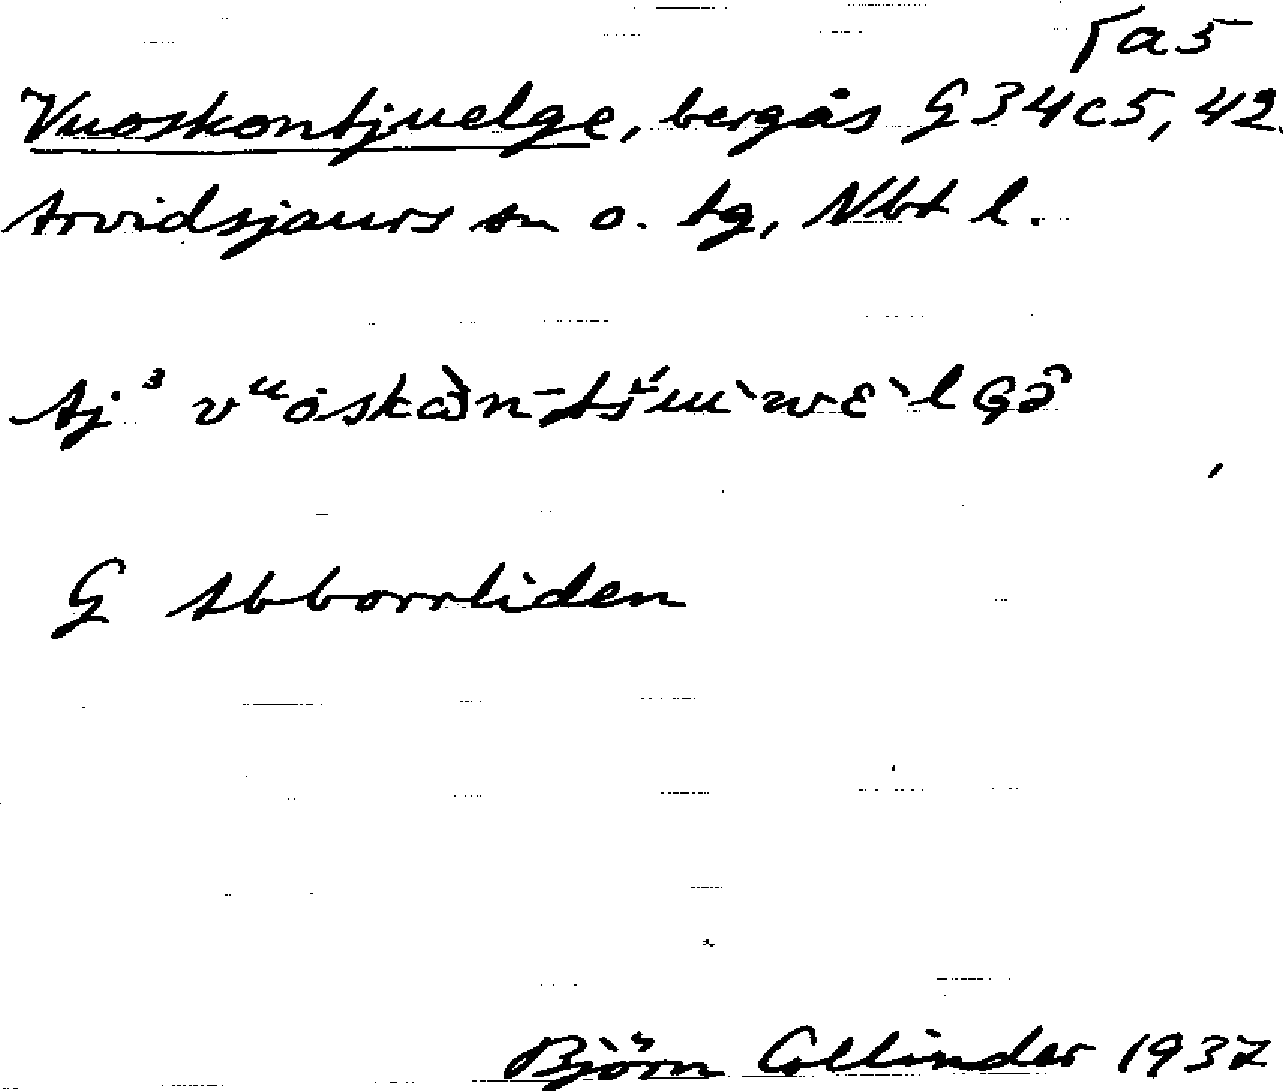 ⌈a5
Vuoskontjuelge, bergås G34c5, 42.
Arvidsjaurs sn o. tg, Nbt l.
Aj³
G Abborrliden
Björn Collinder 1937